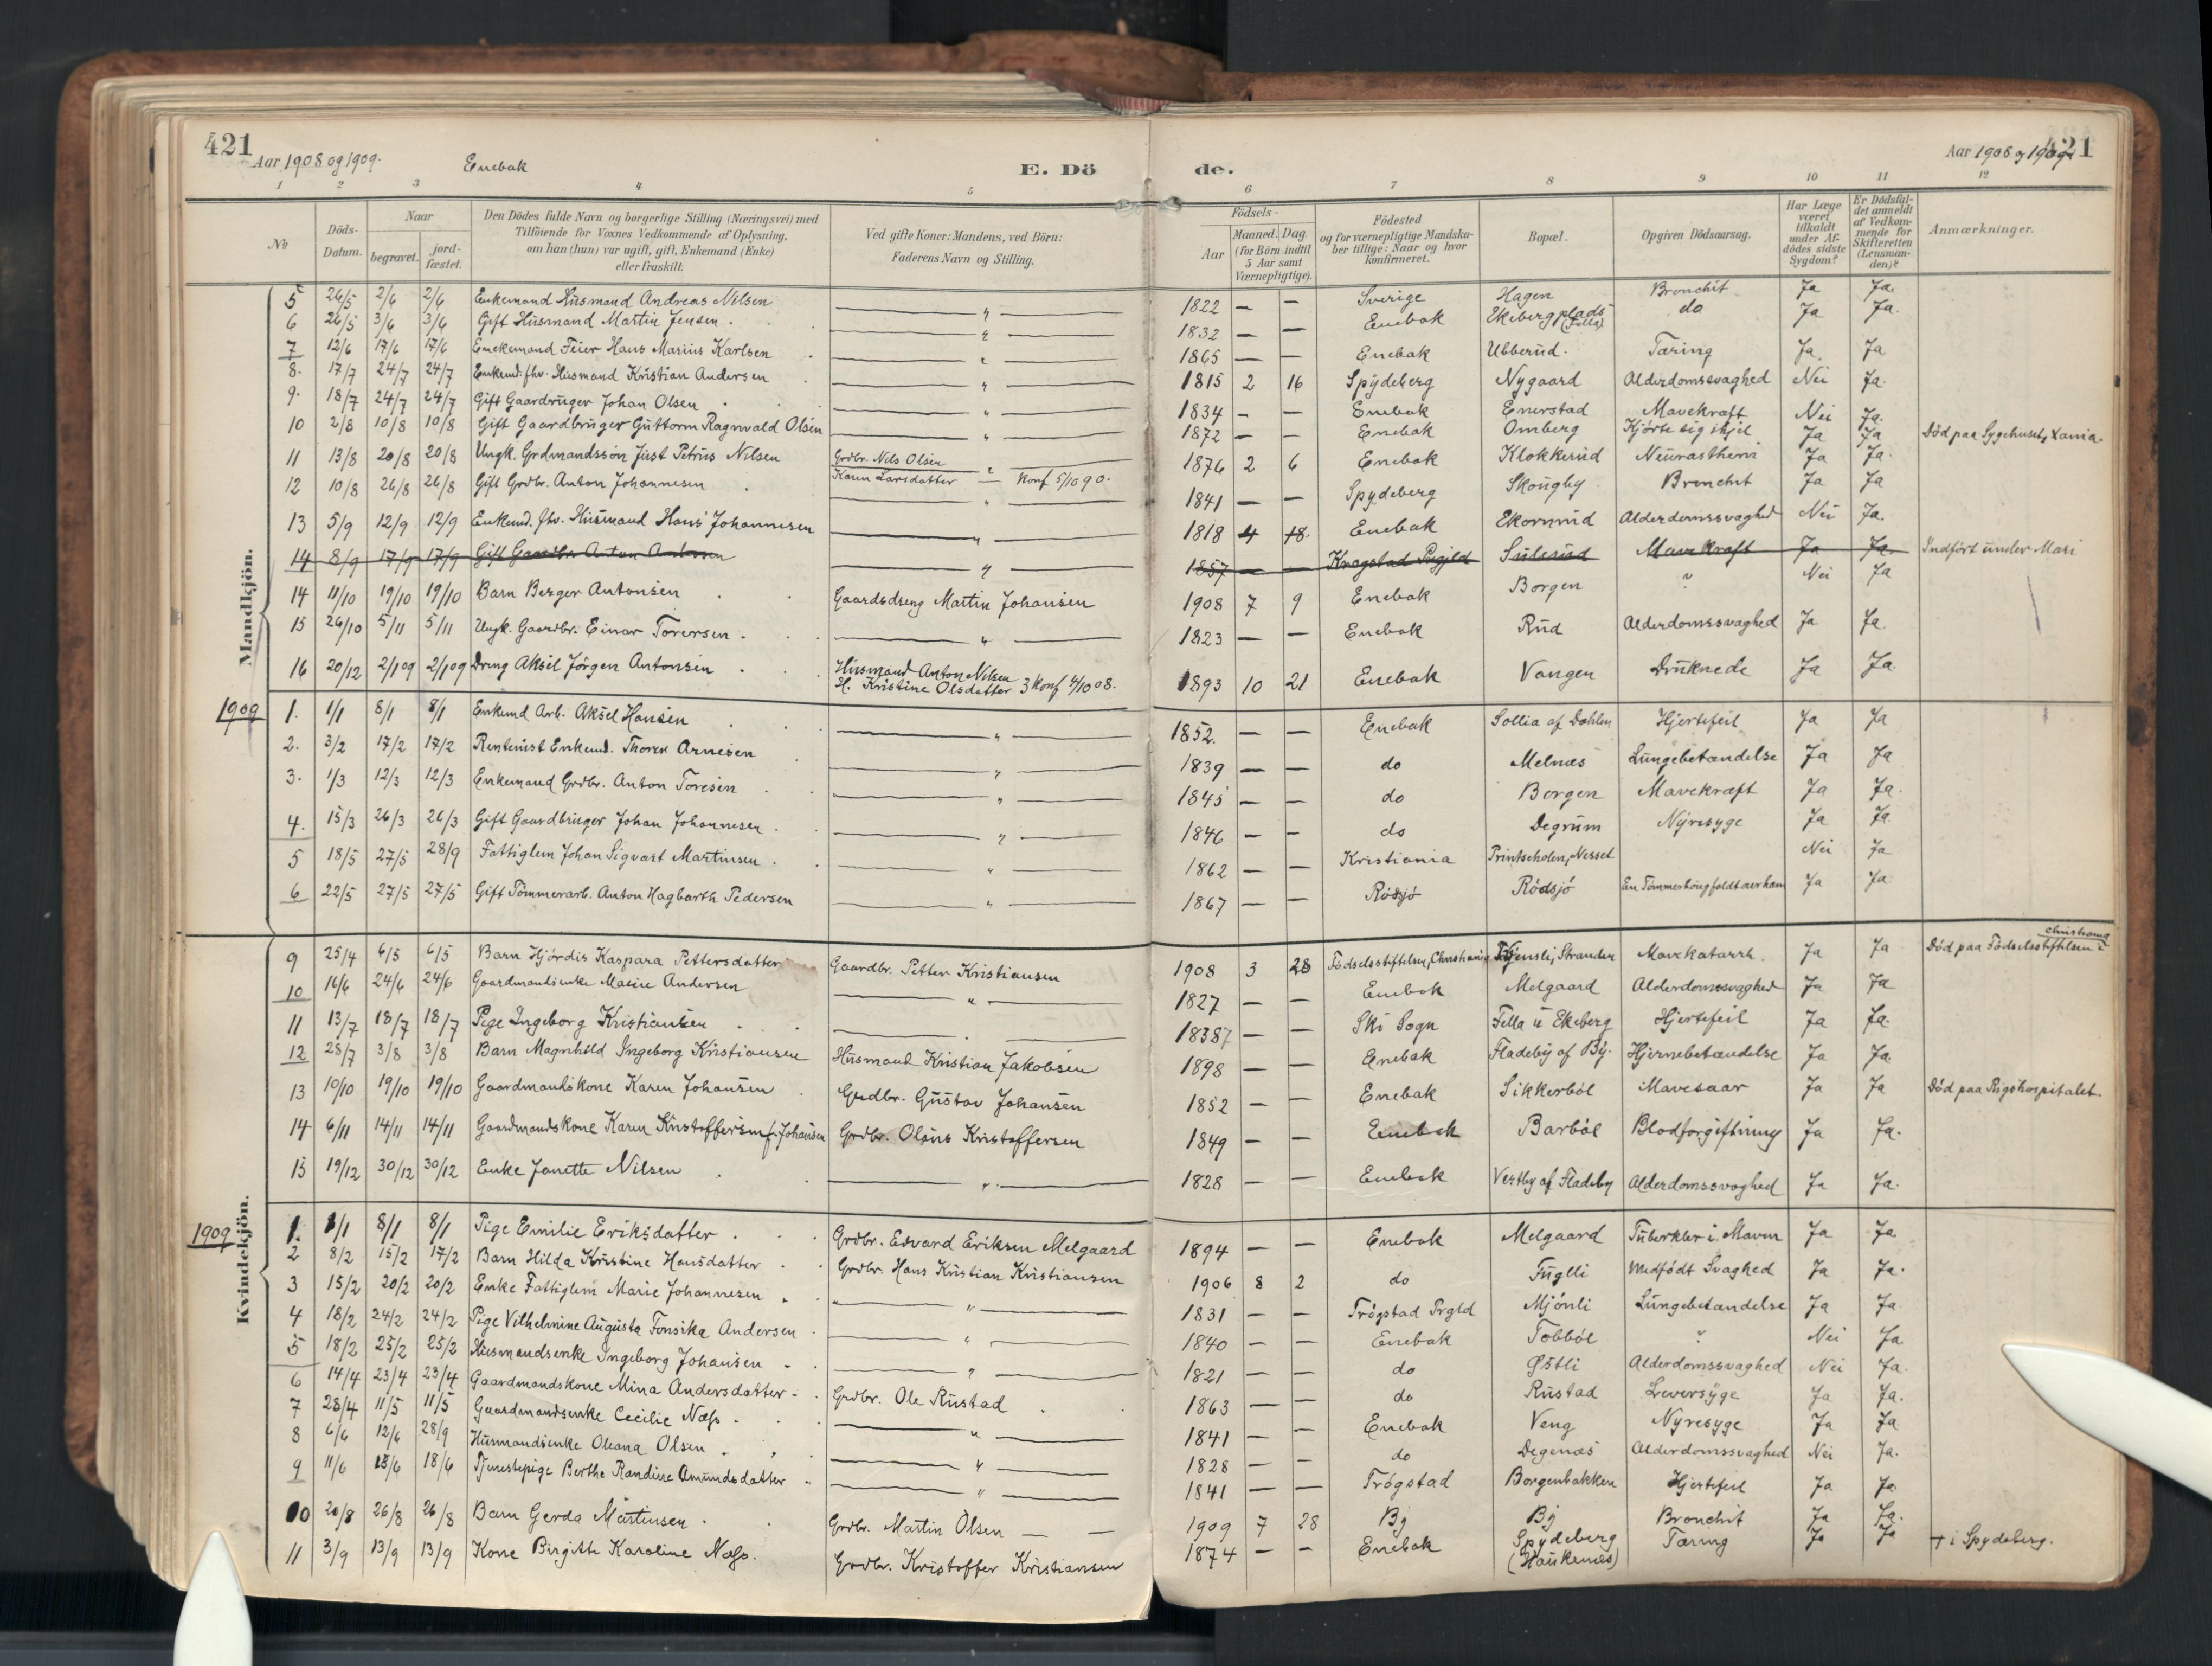 421
Aar 1908 og 1909.
Enebak
E. Dö de.
Aar 1908 og 1909
421
1 2 3 4 5 6 7 8 9 10 11 12
No
Döds-Datum.
Naar
begravet.
jord-fæstet.
Den Dödes fulde Navn og borgerlige Stilling (Næringsvei) med
Tilföiende for Voxnes Vedkommende af Oplysning,
om han (hun) var ugift, gift, Enkemand (Enke)
eller fraskilt.
Ved gifte Koner: Mandens, ved Börn:
Faderens Navn og Stilling.
Födsels-
Aar
Maaned. Dag
(for Börn indtil
5 Aar samt
Værnepligtige).
Födested
og for værnepligtige Mandska-
ber tillige: Naar og hvor
konfirmeret.
Bopæl.
Opgiven Dödsaarsag.
Har Læge
været
tilkaldt
under Af-
dödes sidste
Sygdom?
Er Dödsfal-
det anmeldt
af Vedkom-
mende for
Skifteretten
(Lensman-
den)?
Anmærkninger.
Mandkjön.
5 26/5 2/6 2/6 Enkemand Husmand Andreas Nilsen — " — 1822 — — Sverige Hagen Bronchit Ja Ja.
6 26/5 3/6 3/6 Gift Husmand Martin Jensen. — " — 1832 — — Enebak Ekebergplads (Fella) do Ja Ja.
7 12/6 17/6 17/6 Enekemand Feier Hans Marius Karlsen — " — 1865 — — Enebak Ubberud. Tæring Ja Ja
8. 17/7 24/7 24/7 Enkemd. fhv. Husmand Kristian Andersen — " — 1815 2 16 Spydeberg Nygaard Alderdomssvaghed Nei Ja.
9. 18/7 24/7 24/7 Gift Gaardbruger Johan Olsen — " — 1834 — — Enebak Enerstad Mavekræft Nei Ja.
10 2/8 10/8 10/8 Gift Gaardbruger Guttorm Ragnvald Olsen — " — 1872 — — Enebak Omberg Kjørte sig ihjel Ja Ja Død paa Sygehuset, Xania.
11 13/8 20/8 20/8 Ungk. Grdmandssøn Just Petrus Nilsen Grdbr. Nils Olsen Karen Larsdatter — Konf 5/10 90. 1876 2 6 Enebak Klokkerud Neurastheni Ja Ja.
12 10/8 26/8 26/8 Gift Grdbr. Anton Johannesen — " — 1841 — — Spydeberg Skougby Bronchit Ja Ja
13 5/9 12/9 12/9 Enkemd. fhv. Husmand Hans Johannesen — " — 1818 4 18. Enebak Ekornrud Alderdomssvaghed Nei Ja.
14 8/9 17/9 17/9 Gift Gaardbr Anton Andersen — " — 1857 — — Kragstad Prgjeld Sulerud Mavekræft Ja Ja. Indført under Mari
14 11/10 19/10 19/10 Barn Berger Antonsen Gaardsdreng Martin Johansen 1908 7 9 Enebak Borgen ? Nei Ja
15 26/10 5/11 5/11 Ungk. Gaardbr. Einar Torersen. — " — 1823 — — Enebak Rud Alderdomssvaghed Ja Ja.
16 20/12 2/1 09 2/1 09 Dreng Aksel Jörgen Antonsen Husmand Anton Nilsen H. Kristine Olsdatter 3 Konf 4/10 08. 1893 10 21 Enebak Vangen Druknede Ja Ja.
1909
1. 1/1 8/1 8/1 Enkemd Arb. Aksel Hansen — " — 1852. — — Enebak Sollia af Dahlen Hjertefeil Ja Ja
2. 3/2 17/2 17/2 Rentenist Enkemd. Thorer Arnesen — " — 1839 — — do Melnæs Lungebetændelse Ja Ja
3. 1/3 12/3 12/3 Enkemand Grdbr. Anton Toresen — " — 1845 — — do Borgen Mavekræft Ja Ja.
4. 15/3 26/3 26/3 Gift Gaardbruger Johan Johannesen. — " — 1846 — — do Degrum Nyresyge Ja Ja
5 18/5 27/5 28/9 Fattiglem Johan Sigvart Martinsen. — " — 1862 — — Kristiania Printseholen, Nesset Nei Ja
6 22/5 27/5 27/5 Gift Tömmerarb. Anton Hagbarth Pedersen — " — 1867 — — Rósjó Ródsjó En Tömmerhaug faldt over ham Ja Ja
Kvindekjön.
9 25/4 6/5 6/5 Barn Hjördis Kaspara Pettersdatter Gaardbr. Petter Kristiansen 1908 3 28 Fødselsstiftelsen, Christiania Strander Mavekatarrh. Ja Ja Død paa Fødselsstiftelsen i Christiania
10 16/6 24/6 24/6 Gaardmandsenke Maren Andersen — " — 1827 — — Enebak Melgaard Alderdomssvaghed Ja Ja
11 13/7 18/7 18/7 Pige Ingeborg Kristiansen — 18387 — — Ski Sogn Fella u Ekeberg Hjertefeil Ja Ja.
12 28/7 3/8 3/8 Barn Magnhild Ingeborg Kristiansen Husmand Kristian Jakobsen 1898 — — Enebak Fladeby af By. Hjernebetændelse Ja Ja.
13 10/10 19/10 19/10 Gaardmandskone Karen Johansen Grdbr. Gustav Johansen 1852 — — Enebak Sikkerböl Mavesaar Ja Ja Död paa Rigshospitalet.
14 6/11 14/11 14/11 Gaardmandskone Karen Kristoffersen f. Johansen Grdbr. Olaus Kristoffersen 1849 — — Enebak Barböl Blodforgiftning Ja Ja.
15 19/12 30/12 30/12 Enke Janette Nilsen — " — 1828 — — Enebak Vestby af Fladeby Alderdomssvaghed Ja Ja.
1909
1. 1/1 8/1 8/1 Pige Emilie Eriksdatter Grdbr. Edvard Eriksen Melgaard 1894 — — Enebak Melgaard Tuberkler i Maven Ja Ja
2 8/2 15/2 17/2 Barn Hilda Kristine Hansdatter Grdbr. Hans Kristian Kristiansen 1906 8 2 do Fuglli Medfödt Svaghed Ja Ja.
3 15/2 20/2 20/2 Enke Fattiglem Marie Johannesen — " — 1831 — — Trögstad Prgld Mjönli Lungebetændelse Ja Ja.
4 18/2 24/2 24/2 Pige Vilhelmine Augusta Fonsika Andersen — " — 1840 — — Enebak Tobböl ? Nei Ja
5 18/2 25/2 25/2 Husmandsenke Ingeborg Johansen — " — 1821 — — do Østli Alderdomssvaghed Nei Ja.
6 14/4 23/4 23/4 Gaardmandskone Mina Andersdatter Grdbr. Ole Rustad 1863 — — do Rustad Leversyge Ja Ja.
7 28/4 11/5 11/5 Gaardmandsenke Cecilie Næss — " — 1841 — — Enebak Veng Nyresyge Ja Ja
8 6/6 12/6 28/9 Husmandsenke Oleana Olsen — " — 1828 — — do Degenæs Alderdomssvaghed Nei Ja.
9 11/6 18/6 18/6 Tjenestepige Berthe Randine Amundsdatter — " — 1841 — — Trögstad Borgenbakken Hjertefeil Ja Ja.
10 20/8 26/8 26/8 Barn Gerda Martinsen Grdbr. Martin Olsen — — 1909 7 28 By By Bronchit Ja Ja.
11 3/9 13/9 13/9 Kone Birgith Karoline Næss. Grdbr. Kristoffer Kristiansen 1874 — — Enebak Spydeberg (Haukenæs) Tæring Ja Ja + i Spydeberg.